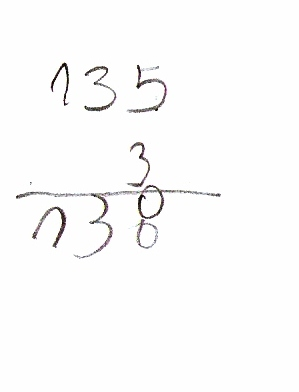 135
3
138